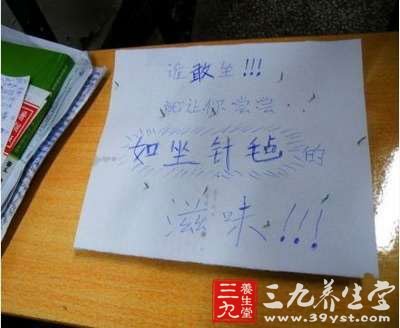 谁敢坐!!!
就让你尝尝..
如坐针毡的
滋味!!!
三九
养生堂
三九养生堂
www.39yst.com